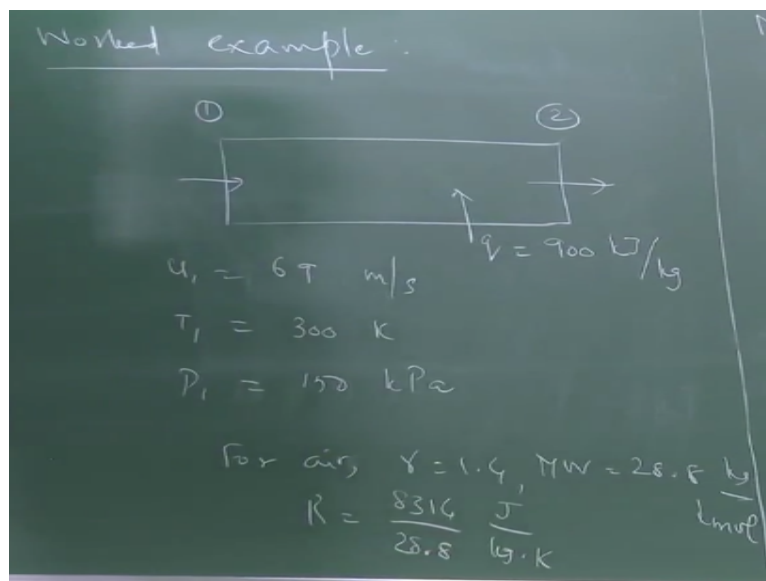 Worked example :
① ②
q = 900 kJ/kg
u₁ = 69 m/s
T₁ = 300 K
P₁ = 150 kPa
For air, γ = 1.4, MW = 28.8 kg/kmol
R = 8314/28.8 J/kg.K